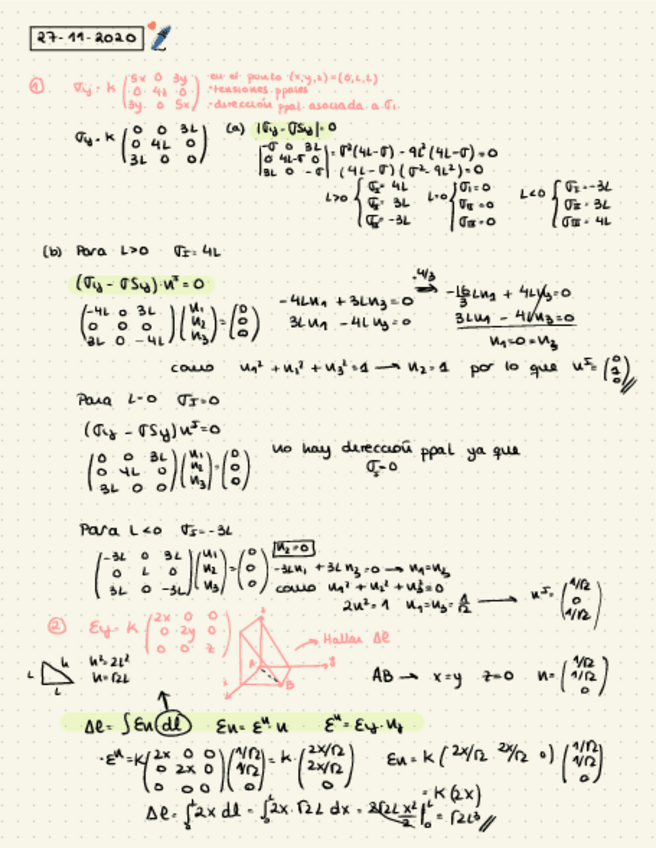 27-11-2020
① σij = k (5x 0 3y / 0 4z 0 / 3y 0 5x) en el punto (x,y,z)=(0,L,L)
· tensiones ppales
· dirección ppal asociada a σ1
σij = k (0 0 3L / 0 4L 0 / 3L 0 0) (a) |σij - σSij| = 0
|-σ 0 3L / 0 4L-σ 0 / 3L 0 -σ| = σ²(4L-σ) - 9L²(4L-σ) = 0
(4L-σ)(σ²-9L²) = 0
L>0 { σI = 4L / σII = 3L / σIII = -3L L=0 { σI = 0 / σII = 0 / σIII = 0 L<0 { σI = -3L / σII = 3L / σIII = 4L
(b) Para L>0 σI = 4L
(σij - σSij)·nI = 0
(-4L 0 3L / 0 0 0 / 3L 0 -4L)(n1 / n2 / n3) = (0 / 0 / 0) -4Ln1 + 3Ln3 = 0 ·4/3 → -16/3 Ln1 + 4Ln3 = 0
3Ln1 - 4Ln3 = 0 3Ln1 - 4Ln3 = 0
n1 = 0 = n3
como n1² + n2² + n3² = 1 → n2 = 1 por lo que nI = (0 / 1 / 0)
Para L=0 σI = 0
(σij - σSij)nI = 0
(0 0 3L / 0 4L 0 / 3L 0 0)(n1 / n2 / n3) = (0 / 0 / 0) no hay dirección ppal ya que
σI = 0
Para L<0 σI = -3L
(-3L 0 3L / 0 L 0 / 3L 0 -3L)(n1 / n2 / n3) = (0 / 0 / 0) n2 = 0
-3Ln1 + 3Ln3 = 0 → n1 = n3
como n1² + n2² + n3² = 0
2n² = 1 n1 = n3 = 1/√2 → nI = (1/√2 / 0 / 1/√2)
② Eij = k (2x 0 0 / 0 2y 0 / 0 0 z) A B → Hallar Δl
L L h h² = 2L²
h = √2L
AB → x=y z=0 n = (1/√2 / 1/√2 / 0)
Δl = ∫ En dl En = Eⁿ·n Eⁿ = Eij·nj
· Eⁿ = k (2x 0 0 / 0 2x 0 / 0 0 0)(1/√2 / 1/√2 / 0) = k·(2x/√2 / 2x/√2 / 0) En = k (2x/√2 2x/√2 0)(1/√2 / 1/√2 / 0)
= k (2x)
Δl = ∫ 2x dl = ∫ 2x·√2L dx = 2√2L x²/2 | = √2L³